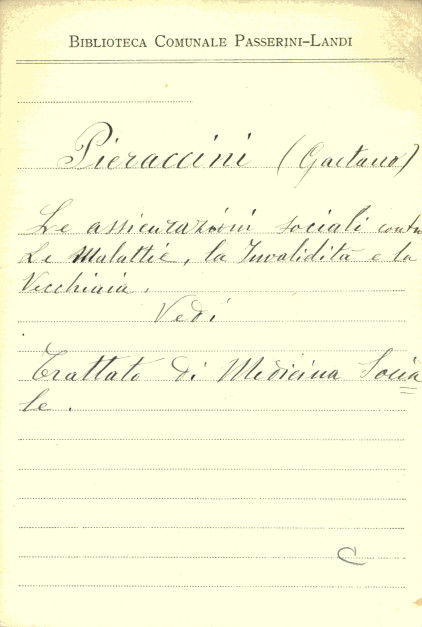 BIBLIOTECA COMUNALE PASSERINI-LANDI
Pieraccini (Gaetano)
Le assicurazioni sociali contro
Le Malattie, la Invalidità e la
Vecchiaia.
Vedi
Trattato di Medicina Socia=
le.
C